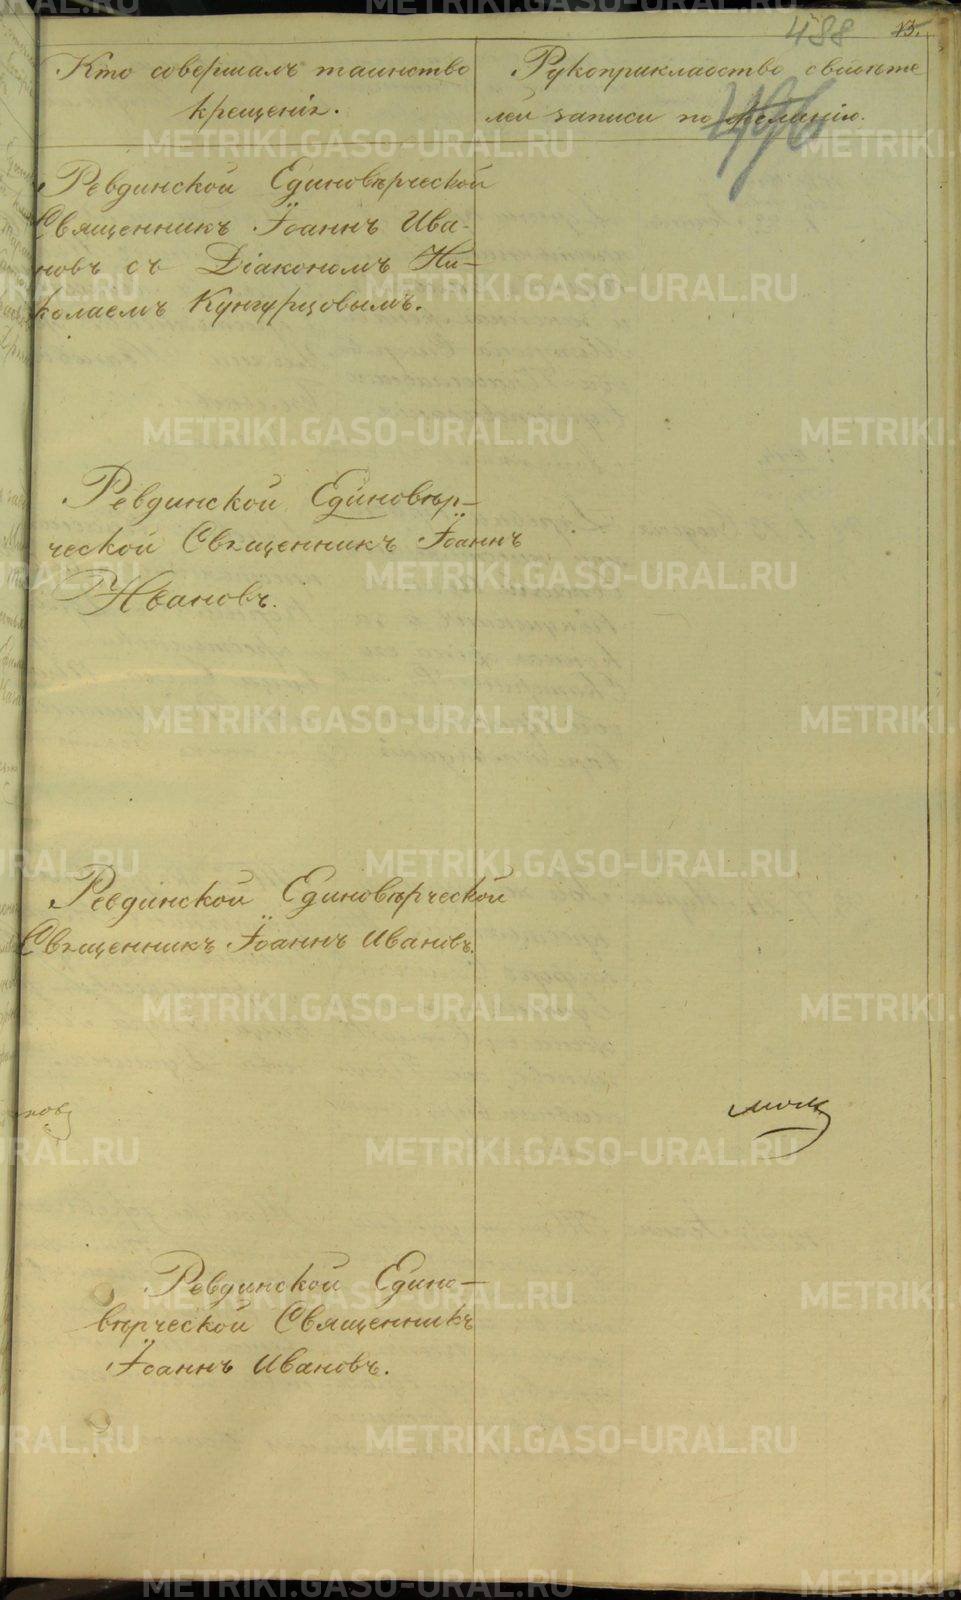 488 13.
Кто совершалъ таинство
крещенія.
Рукоприкладство свидѣте
лей записи по желанію.
496
Ревдинской Единовѣрческой
Священникъ Іоаннъ Ива-
новъ съ Діакономъ Ни-
колаемъ Кунгурцовымъ.
Ревдинской Единовѣр-
ческой Священникъ Іоаннъ
Ивановъ.
Ревдинской Единовѣрческой
Священникъ Іоаннъ Ивановъ.
Ревдинской Едино-
вѣрческой Священникъ
Іоаннъ Ивановъ.
METRIKI.GASO-URAL.RU